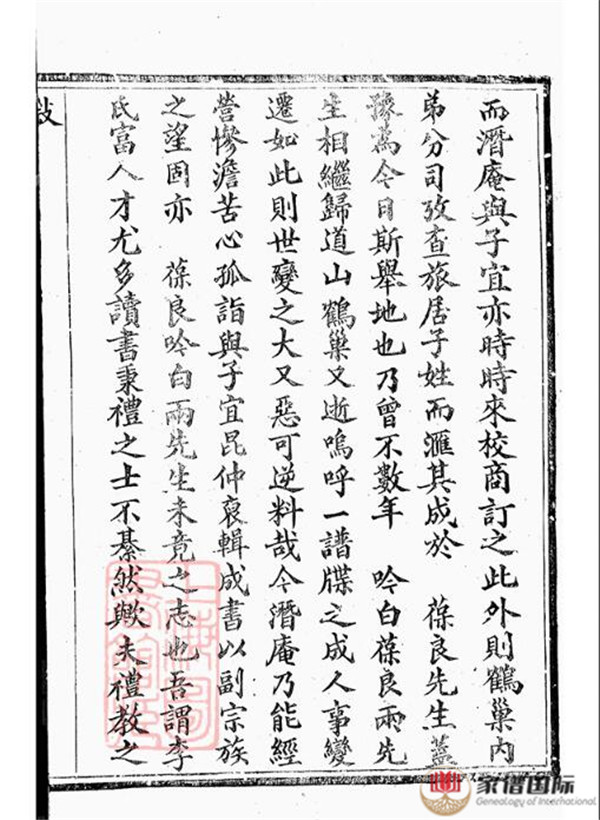 而潛庵與子宜亦時時來校商訂之此外則鶴巢內
弟分司攷查旅居子姓而滙其成於 葆良先生蓋
豫為今日斯舉地也乃曾不數年 吟白葆良兩先
生相繼歸道山鶴巢又逝嗚呼一譜牒之成人事變
遷如此則世變之大又惡可逆料哉今潛庵乃能經
營慘澹苦心孤詣與子宜昆仲裒輯成書以副宗族
之望固亦 葆良吟白兩先生未竟之志也吾謂李
氏富人才尤多讀書秉禮之士不綦然歟夫禮教之
家谱国际
Genealogy of International